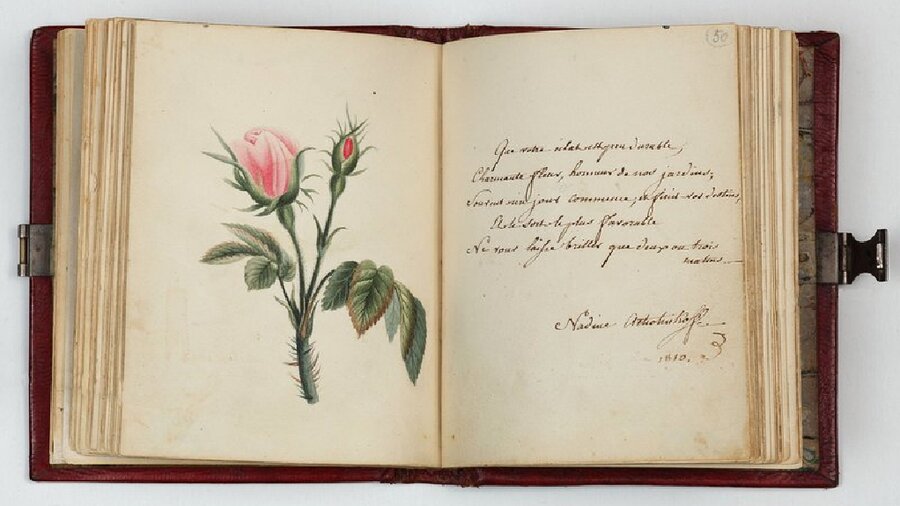 50
Que votre éclat est peu durable,
Charmante fleur, honneur de nos jardins;
Souvent un jour commence et finit vos destins,
Et le sort le plus favorable
Ne vous laisse briller que deux ou trois
matins.
Nadine
1810.